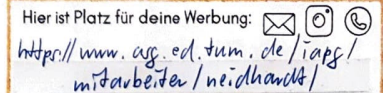 Hier ist Platz für deine Werbung:
https://www.asg.ed.tum.de/iapg/
mitarbeiter/neidhardt/